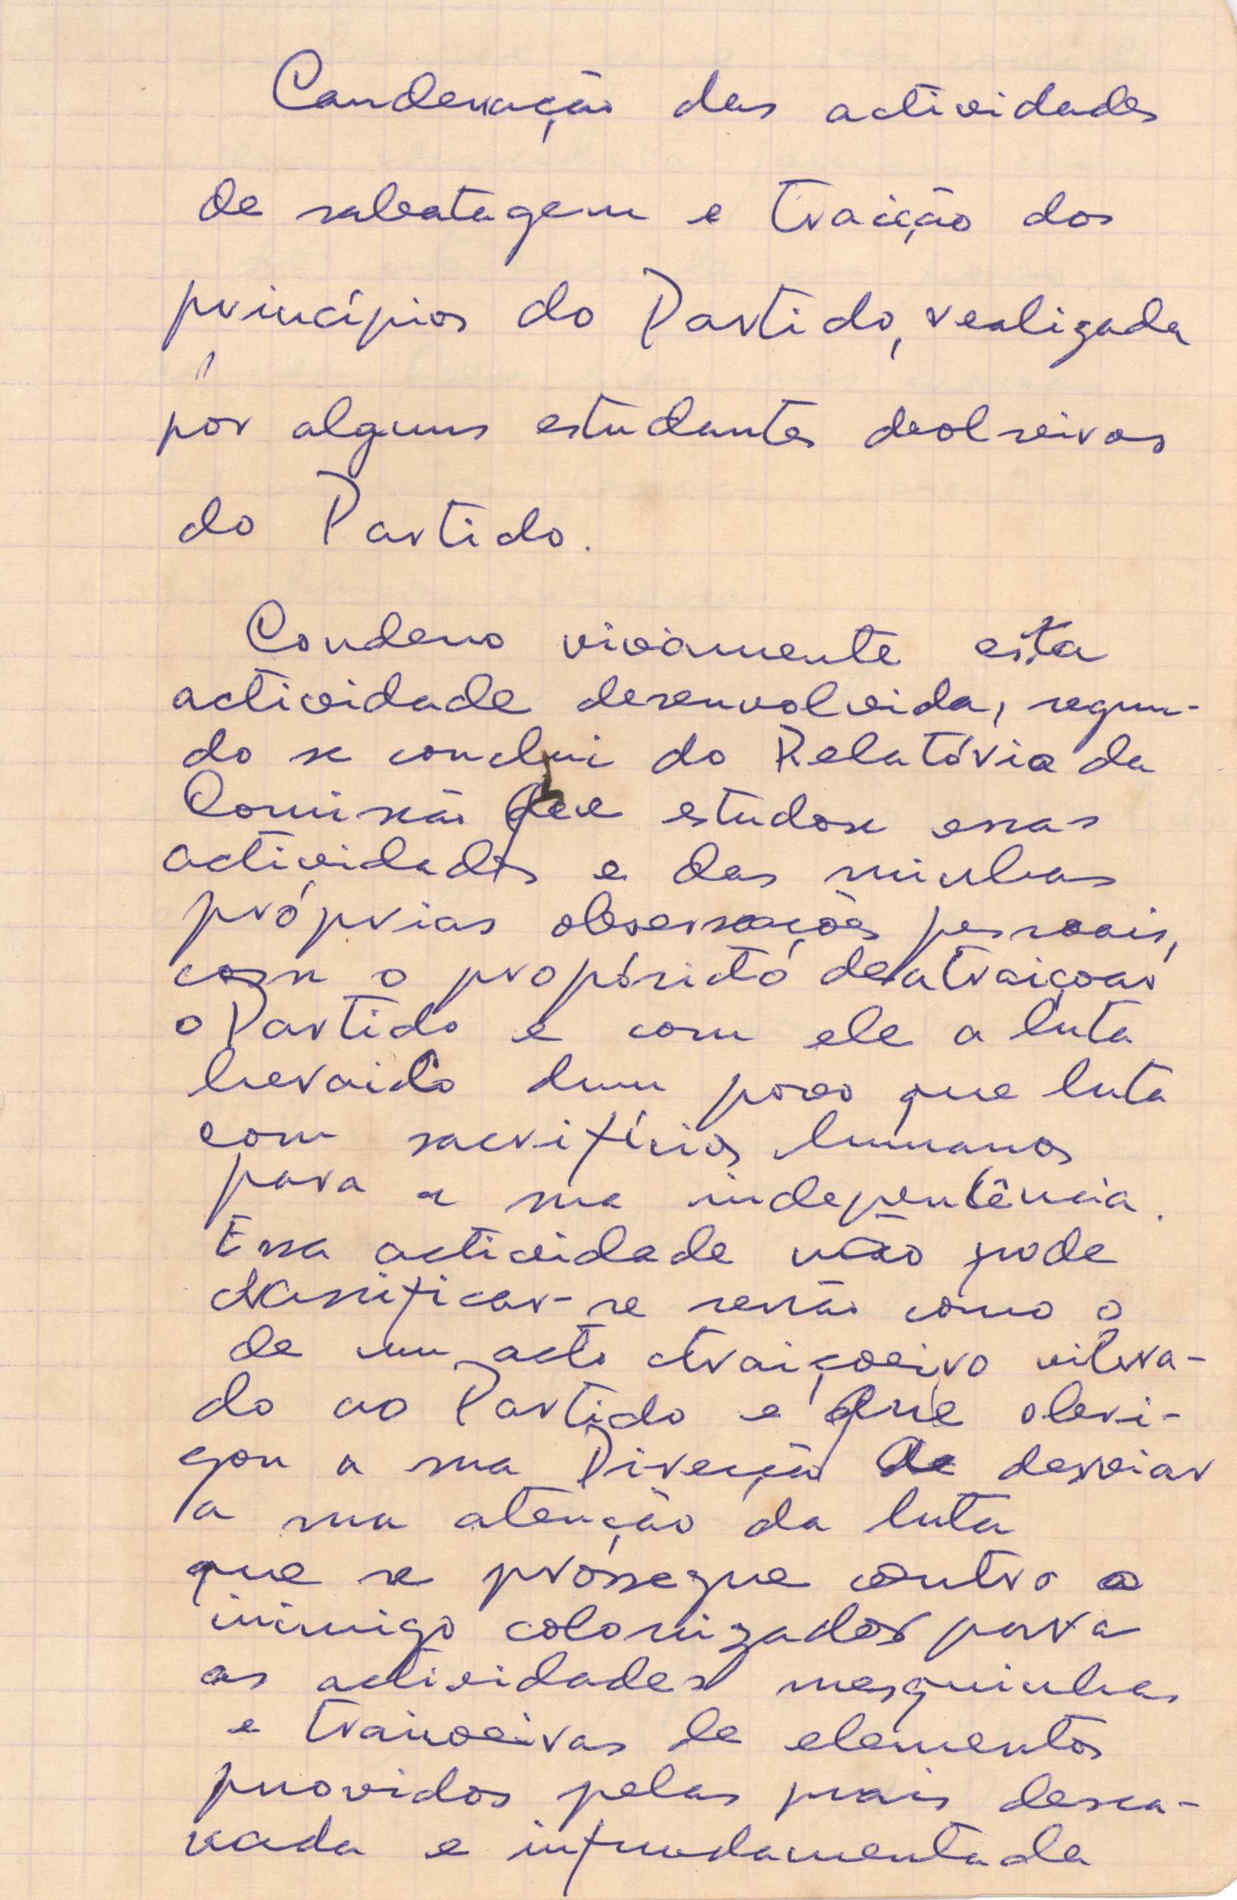 Condenação das actividades
de sabotagem e traição dos
princípios do Partido, realizada
por alguns estudantes
do Partido.
Condeno vivamente esta
actividade desenvolvida, segun-
do se conclui do Relatório da
Comissão que estudou essas
actividades e das minhas
próprias observações pessoais,
com o propósito de atraiçoar
o Partido e com ele a luta
heroica dum povo que luta
com sacrifícios humanos
para a sua independência.
Essa actividade não pode
classificar-se senão como o
de um acto traiçoeiro
do ao Partido e que obri-
gou a sua Direcção de desviar
a sua atenção da luta
que se prossegue contra o
inimigo colonizador para
as actividades mesquinhas
e traiçoeiras de elementos
movidos pelas mais desca-
rada e infundamentada